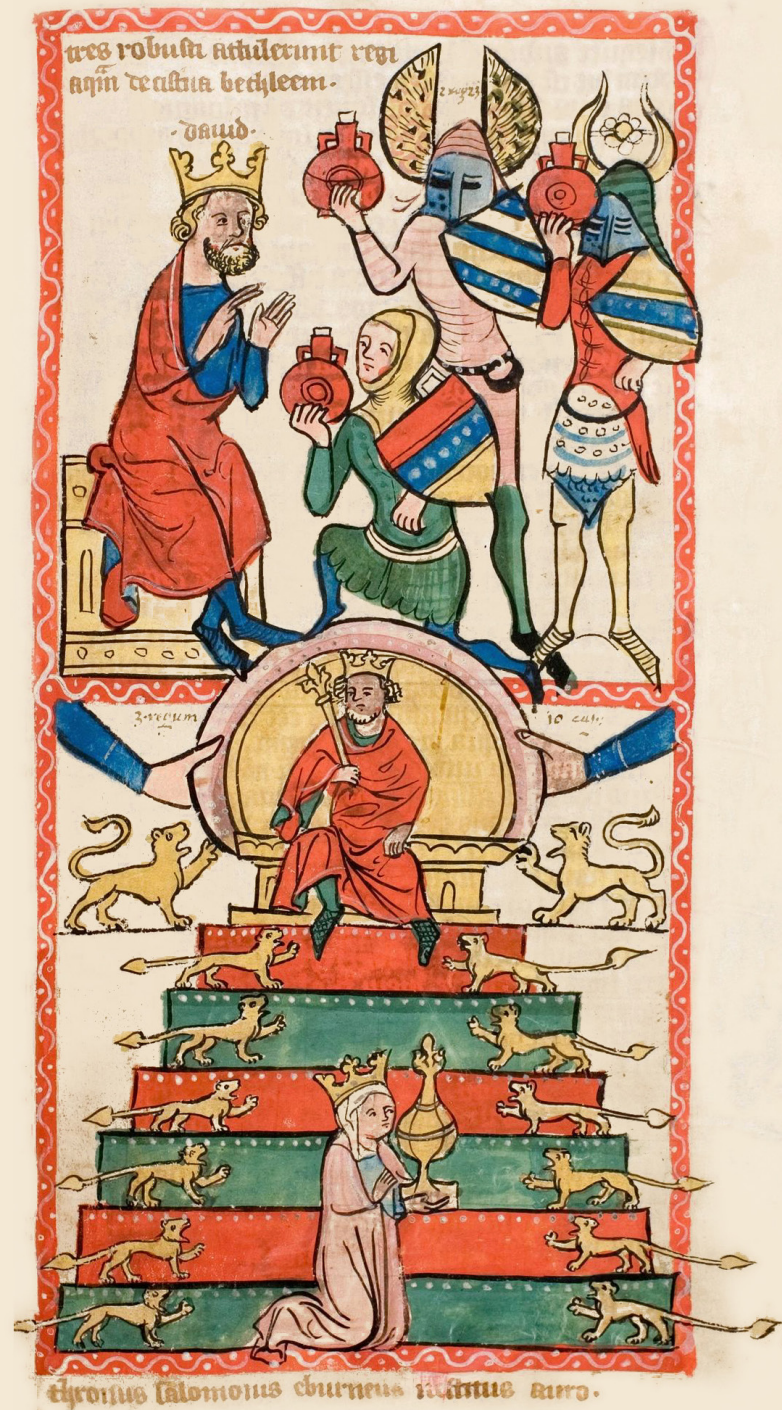 tres robusti attulerunt regi
aqm̃ de cist̾na bethleem·
·dauid·
2 reg 23
3· regum 10 cap:
thronus salomonis eburneus auro.